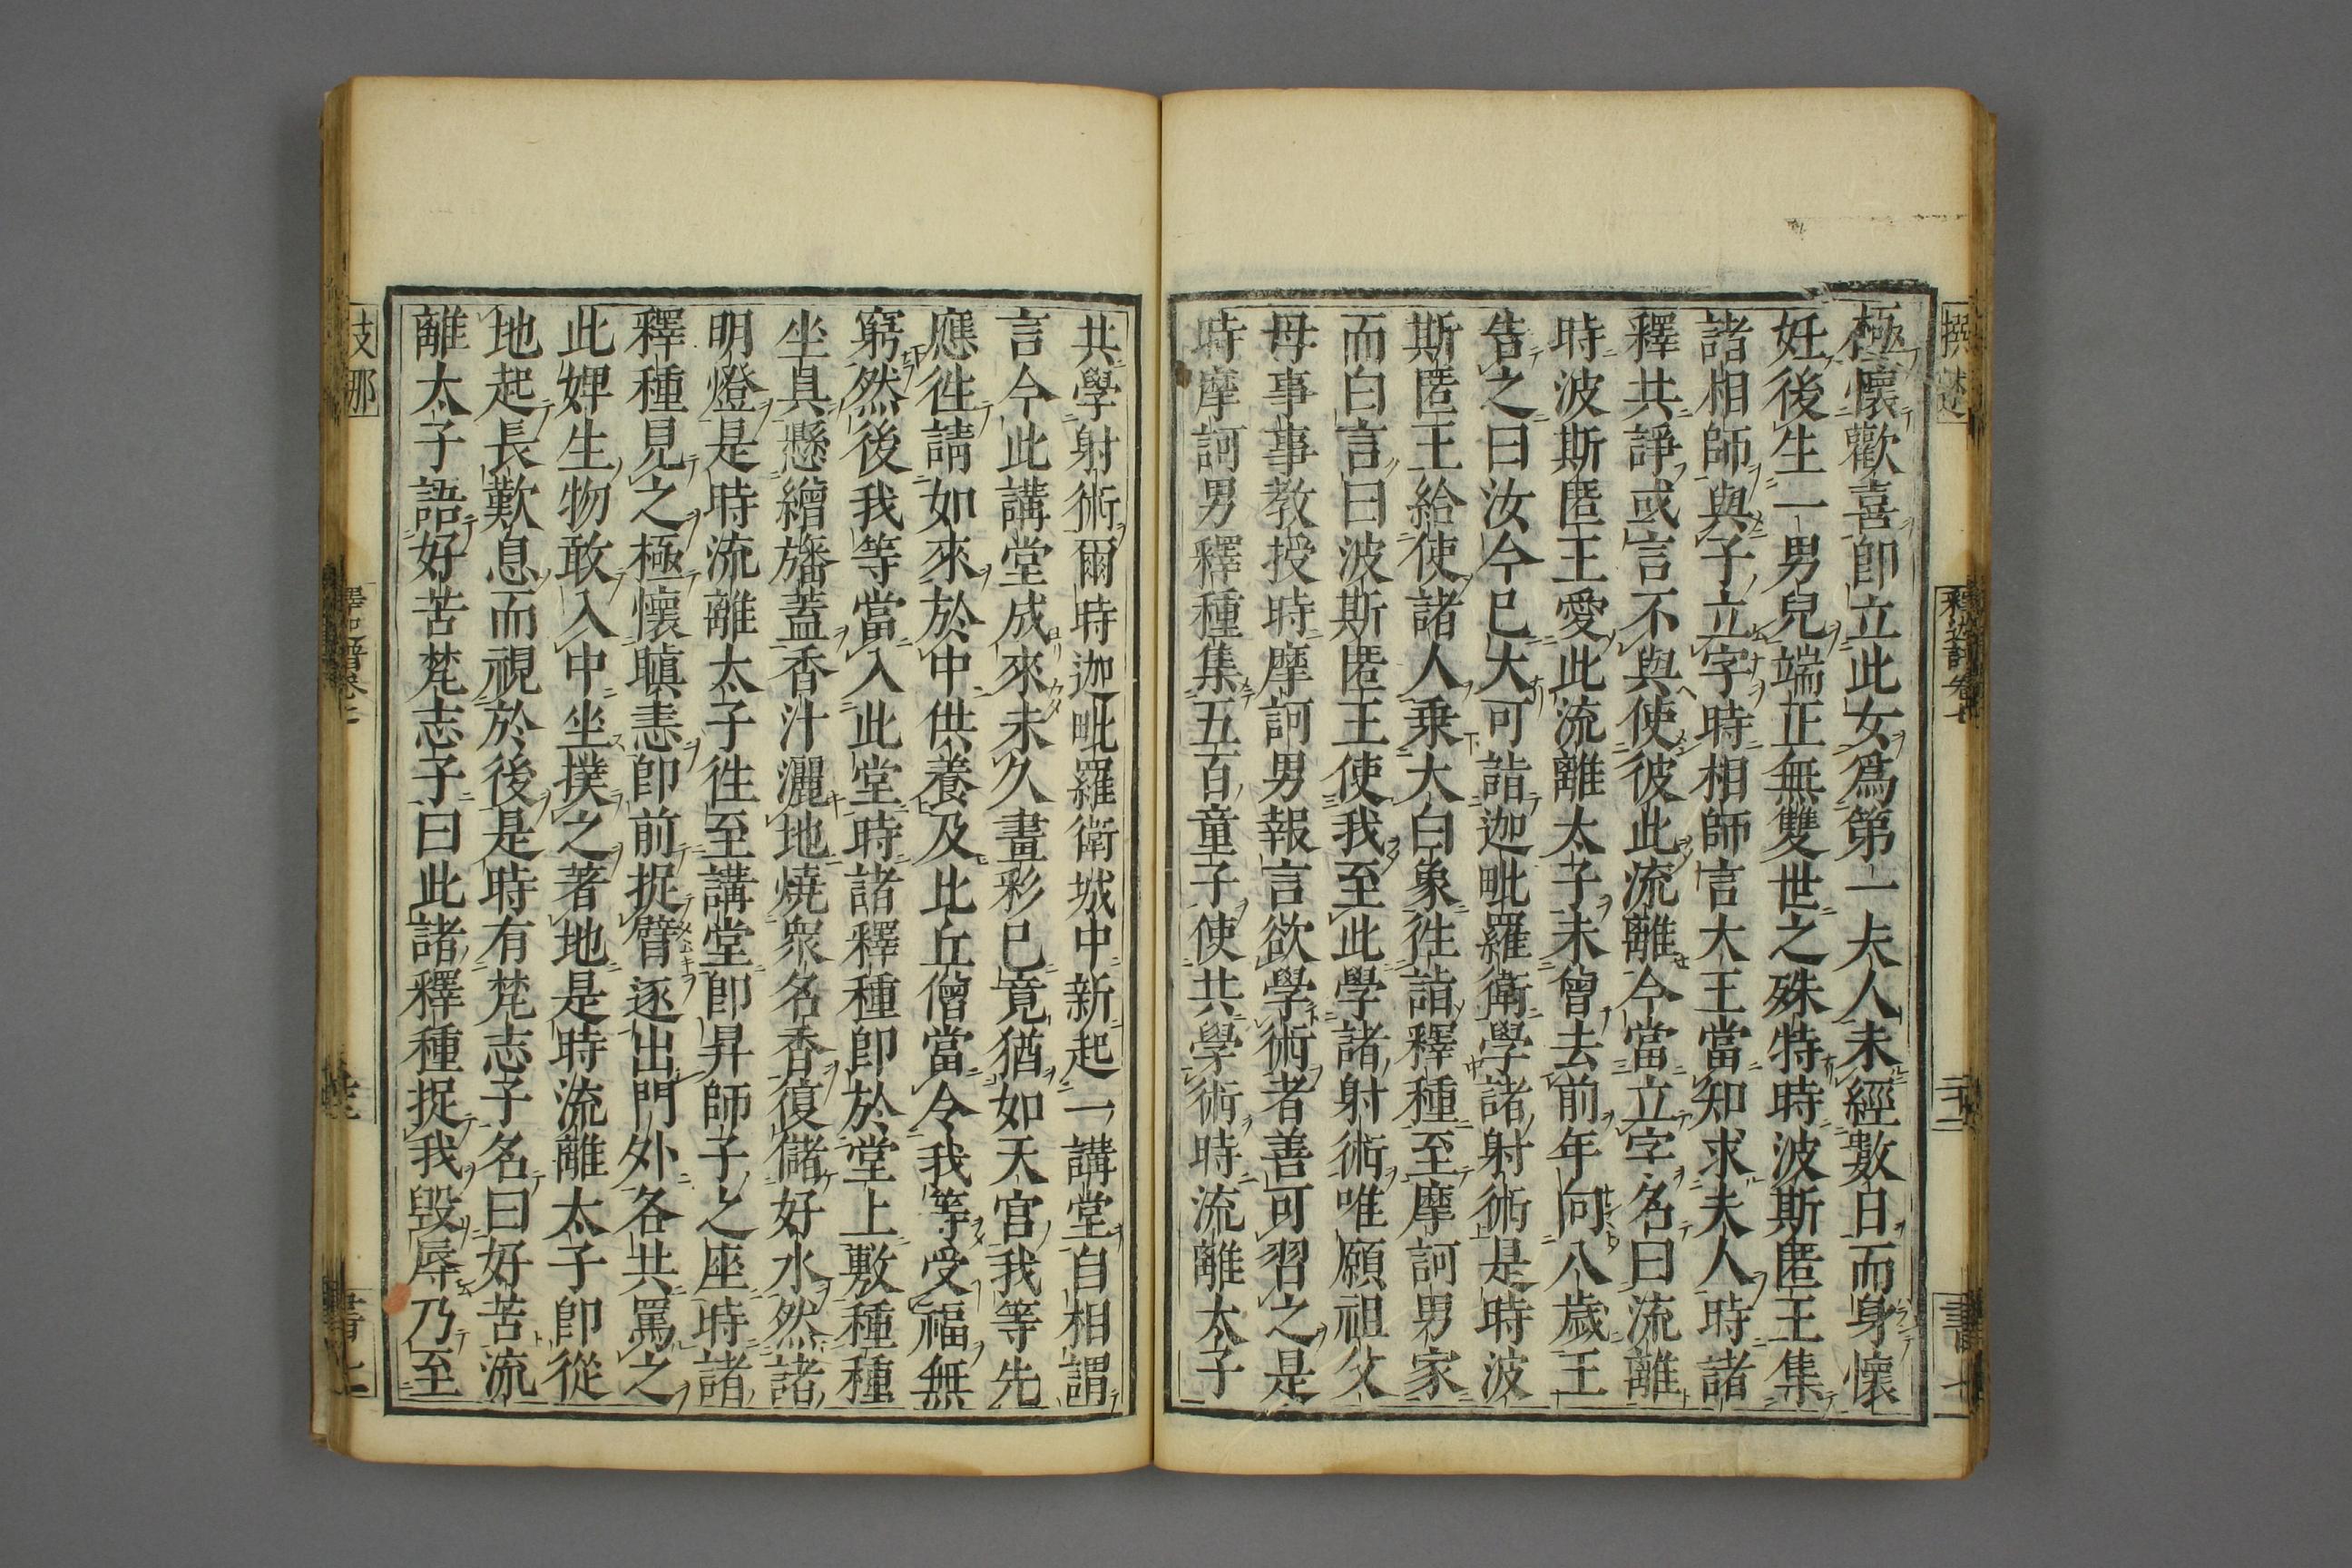 極懷歡喜即立此女爲第一夫人未經數日而身懷
妊後生一男兒端正無雙世之殊特時波斯匿王集
諸相師與子立字時相師言大王當知求夫人時諸
釋共諍或言不與使彼此流離今當立字名曰流離
時波斯匿王愛此流離太子未曾去前年向八歲王
告之曰汝今已大可詣迦毗羅衛學諸射術是時波
斯匿王給使諸人乗大白象徃詣釋種至摩訶男家
而白言曰波斯匿王使我至此學諸射術唯願祖父
母事事教授時摩訶男報言欲學術者善可習之是
時摩訶男釋種集五百童子使共學術時流離太子
共學射術爾時迦毗羅衛城中新起一講堂自相謂
言今此講堂成來未久畫彩已竟猶如天宮我等先
應徃請如來於中供養及比丘僧當令我等受福無
窮然後我等當入此堂時諸釋種即於堂上敷種種
坐具懸繒旛蓋香汁灑地燒衆名香復儲好水然諸
明燈是時流離太子徃至講堂即昇師子之座時諸
釋種見之極懷瞋恚即前捉臂逐出門外各共罵之
此婢生物敢入中坐撲之著地是時流離太子即從
地起長歎息而視於後是時有梵志子名曰好苦流
離太子語好苦梵志子曰此諸釋種捉我毁辱乃至